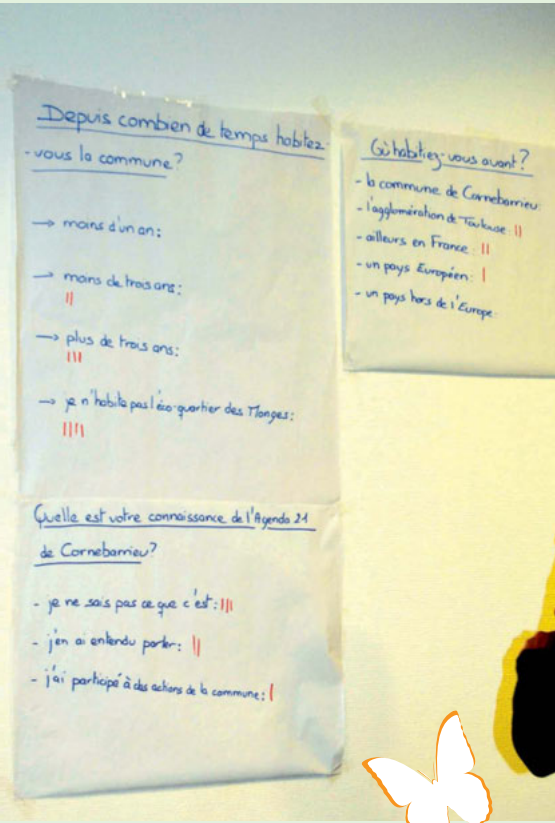 Depuis combien de temps habitez-
-vous la commune?
→ moins d'un an:
→ moins de trois ans:
||
→ plus de trois ans:
|||
→ je n'habite pas l'éco-quartier des Monges:
||||
Quelle est votre connaissance de l'Agenda 21
de Cornebarrieu?
- je ne sais pas ce que c'est: |||
- j'en ai entendu parler: ||
- j'ai participé à des actions de la commune: |
Où habitiez-vous avant?
- la commune de Cornebarrieu:
- l'agglomération de Toulouse: ||
- ailleurs en France: ||
- un pays Européen: |
- un pays hors de l'Europe: